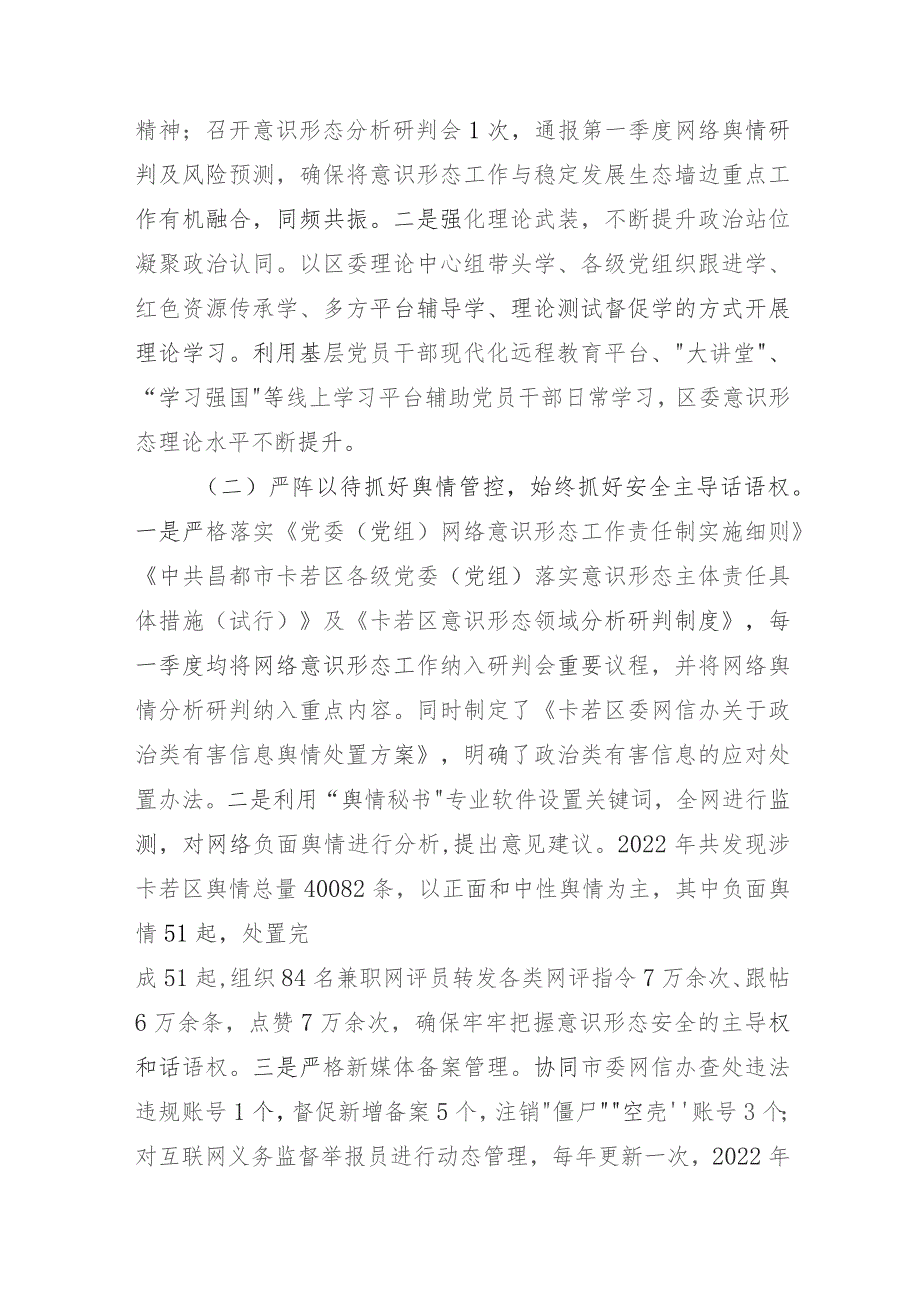 精神；召开意识形态分析研判会1次，通报第一季度网络舆情研
判及风险预测，确保将意识形态工作与稳定发展生态墙边重点工
作有机融合，同频共振。二是强化理论武装，不断提升政治站位
凝聚政治认同。以区委理论中心组带头学、各级党组织跟进学、
红色资源传承学、多方平台辅导学、理论测试督促学的方式开展
理论学习。利用基层党员干部现代化远程教育平台、"大讲堂"、
“学习强国"等线上学习平台辅助党员干部日常学习，区委意识形
态理论水平不断提升。
（二）严阵以待抓好舆情管控，始终抓好安全主导话语权。
一是严格落实《党委（党组）网络意识形态工作责任制实施细则》
《中共昌都市卡若区各级党委（党组）落实意识形态主体责任具
体措施（试行）》及《卡若区意识形态领域分析研判制度》，每
一季度均将网络意识形态工作纳入研判会重要议程，并将网络舆
情分析研判纳入重点内容。同时制定了《卡若区委网信办关于政
治类有害信息舆情处置方案》，明确了政治类有害信息的应对处
置办法。二是利用“舆情秘书"专业软件设置关键词，全网进行监
测，对网络负面舆情进行分析,提出意见建议。2022年共发现涉
卡若区舆情总量40082条，以正面和中性舆情为主，其中负面舆
情51起，处置完
成51起,组织84名兼职网评员转发各类网评指令7万余次、跟帖
6万余条，点赞7万余次，确保牢牢把握意识形态安全的主导权
和话语权。三是严格新媒体备案管理。协同市委网信办查处违法
违规账号1个，督促新增备案5个，注销"僵尸""空壳''账号3个；
对互联网义务监督举报员进行动态管理，每年更新一次，2022年